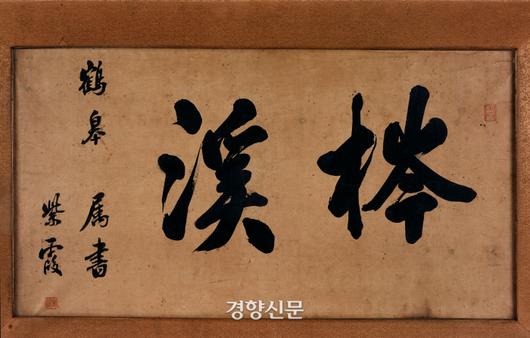 梣溪
鶴皋 属書
紫霞
경향신문